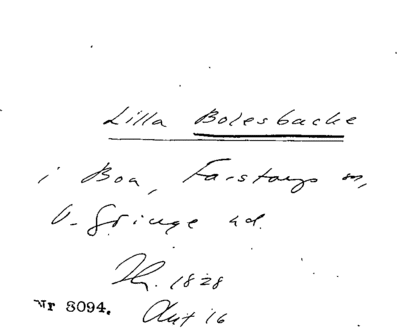 Lilla Bolesbacke
i Boa, Farstorps sn,
V. Göinge hd.
Th. 1828
Nr 8094. Aut 16